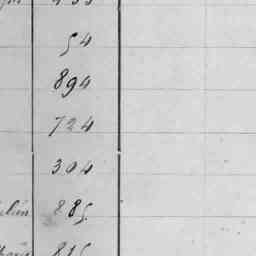 54
894
724
304
885
815